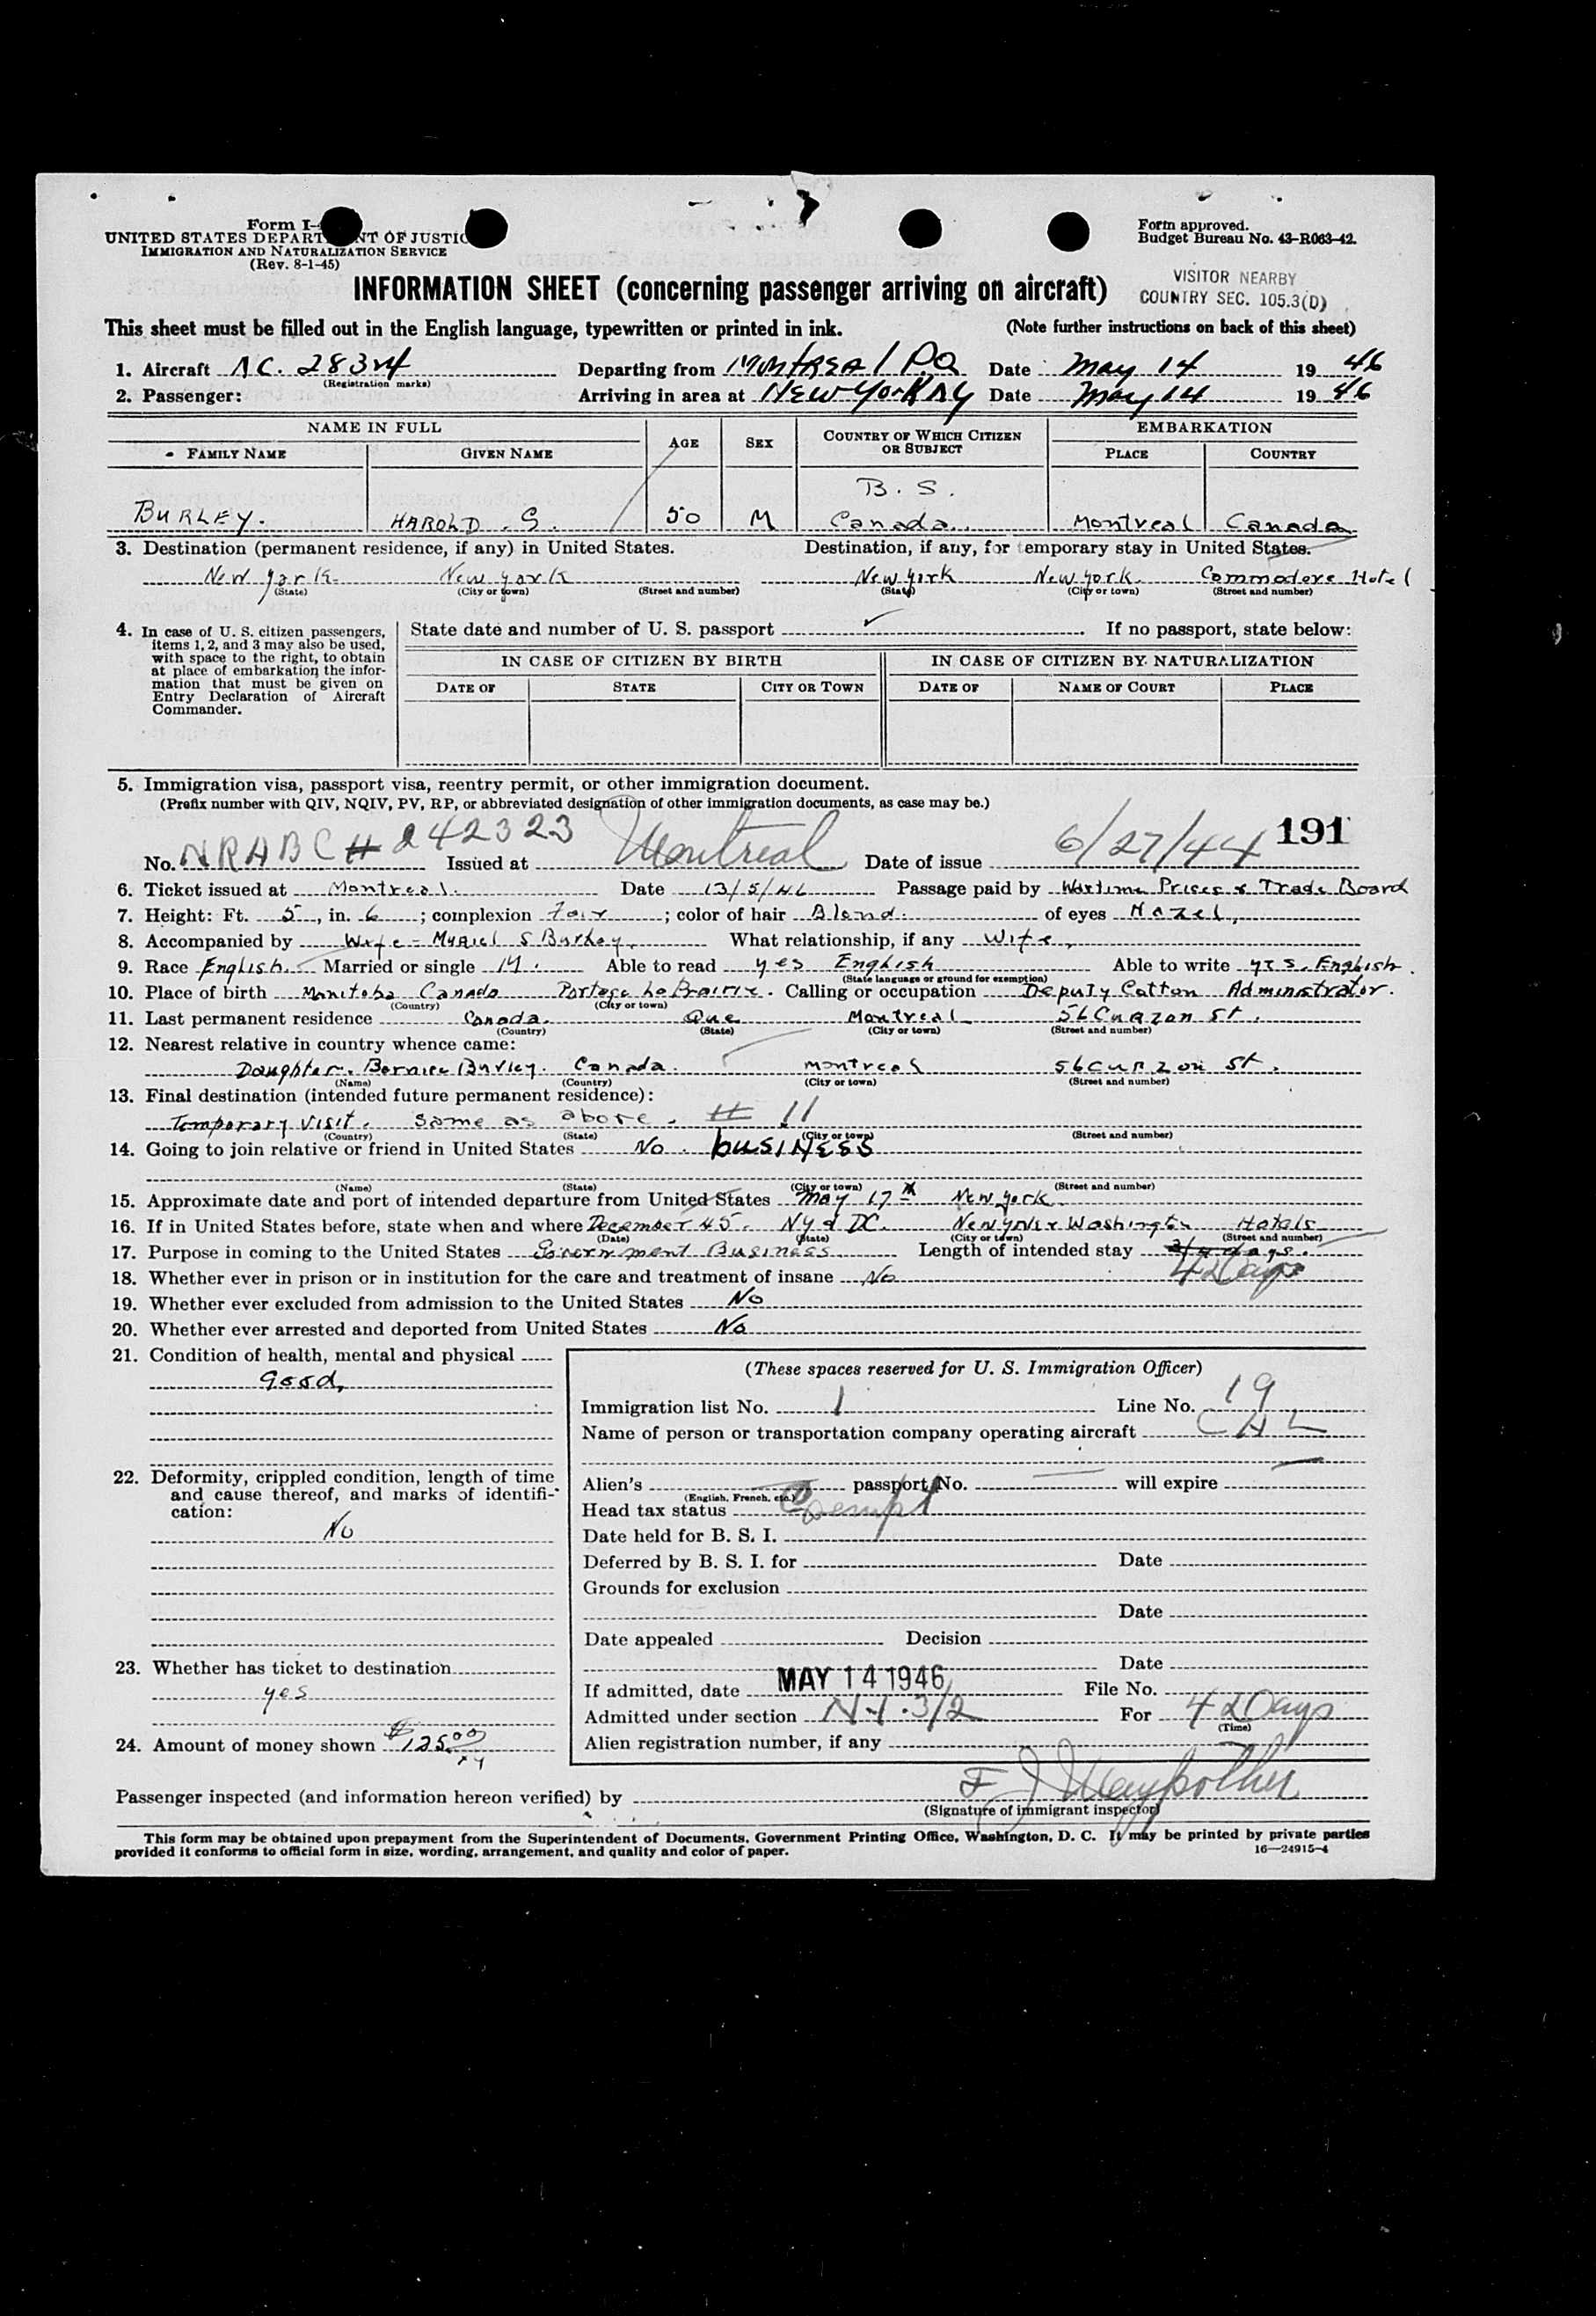 Form I-
UNITED STATES DEPART NT OF JUSTIC
IMMIGRATION AND NATURALIZATION SERVICE
(Rev. 8-1-45)
Form approved.
Budget Bureau No. 43-R063-42.
INFORMATION SHEET (concerning passenger arriving on aircraft)
VISITOR NEARBY
COUNTRY SEC. 105.3(D)
This sheet must be filled out in the English language, typewritten or printed in ink. (Note further instructions on back of this sheet)
1. Aircraft NC. 28324 Departing from MONTREAL P.Q Date May 14 19 46
(Registration marks)
2. Passenger: Arriving in area at NEW YORK NY Date May 14 19 46
NAME IN FULL AGE SEX COUNTRY OF WHICH CITIZEN OR SUBJECT EMBARKATION
FAMILY NAME GIVEN NAME PLACE COUNTRY
B. S.
BURLEY. HAROLD. S. 50 M Canada. Montreal Canada
3. Destination (permanent residence, if any) in United States. Destination, if any, for temporary stay in United States.
New York New York New York New York. Commodore Hotel
(State) (City or town) (Street and number) (State) (City or town) (Street and number)
4. In case of U. S. citizen passengers, items 1, 2, and 3 may also be used, with space to the right, to obtain at place of embarkation the information that must be given on Entry Declaration of Aircraft Commander.
State date and number of U. S. passport If no passport, state below:
IN CASE OF CITIZEN BY BIRTH IN CASE OF CITIZEN BY NATURALIZATION
DATE OF STATE CITY OR TOWN DATE OF NAME OF COURT PLACE
5. Immigration visa, passport visa, reentry permit, or other immigration document.
(Prefix number with QIV, NQIV, PV, RP, or abbreviated designation of other immigration documents, as case may be.)
No. NRABC # 242323 Issued at Montreal Date of issue 6/27/44 191
6. Ticket issued at Montreal. Date 13/5/46 Passage paid by Wartime Prices & Trade Board
7. Height: Ft. 5, in. 6; complexion Fair; color of hair Blond. of eyes Hazel,
8. Accompanied by Wife - Muriel S Burley, What relationship, if any Wife,
9. Race English. Married or single M. Able to read yes English Able to write yes. English.
(State language or ground for exemption)
10. Place of birth Manitoba Canada Portage La Prairie. Calling or occupation Deputy Cotton Administrator.
(Country) (City or town)
11. Last permanent residence Canada. Que Montreal 56 Curzon St.
(Country) (State) (City or town) (Street and number)
12. Nearest relative in country whence came:
Daughter. Bernice Burley. Canada. Montreal 56 Curzon St.
(Name) (Country) (City or town) (Street and number)
13. Final destination (intended future permanent residence):
Temporary visit. Same as above. # 11
(Country) (State) (City or town) (Street and number)
14. Going to join relative or friend in United States No. BUSINESS
(Name) (State) (City or town) (Street and number)
15. Approximate date and port of intended departure from United States May 17th New York.
16. If in United States before, state when and where December 45. NY & DC. New York & Washington Hotels
(Date) (State) (City or town) (Street and number)
17. Purpose in coming to the United States Government Business Length of intended stay 3/4 days.
18. Whether ever in prison or in institution for the care and treatment of insane No 42 Days
19. Whether ever excluded from admission to the United States No
20. Whether ever arrested and deported from United States No
21. Condition of health, mental and physical
Good,
22. Deformity, crippled condition, length of time and cause thereof, and marks of identification:
No
23. Whether has ticket to destination
yes
24. Amount of money shown $125.00
(These spaces reserved for U. S. Immigration Officer)
Immigration list No. 1 Line No. 19
Name of person or transportation company operating aircraft CAL
Alien's passport No. will expire
(English, French, etc.)
Head tax status Exempt
Date held for B. S. I.
Deferred by B. S. I. for Date
Grounds for exclusion
Date
Date appealed Decision
Date
If admitted, date MAY 14 1946 File No.
Admitted under section For 42 Days
(Time)
Alien registration number, if any
Passenger inspected (and information hereon verified) by
(Signature of immigrant inspector)
This form may be obtained upon prepayment from the Superintendent of Documents, Government Printing Office, Washington, D. C. It may be printed by private parties
provided it conforms to official form in size, wording, arrangement, and quality and color of paper.
16—24915-4